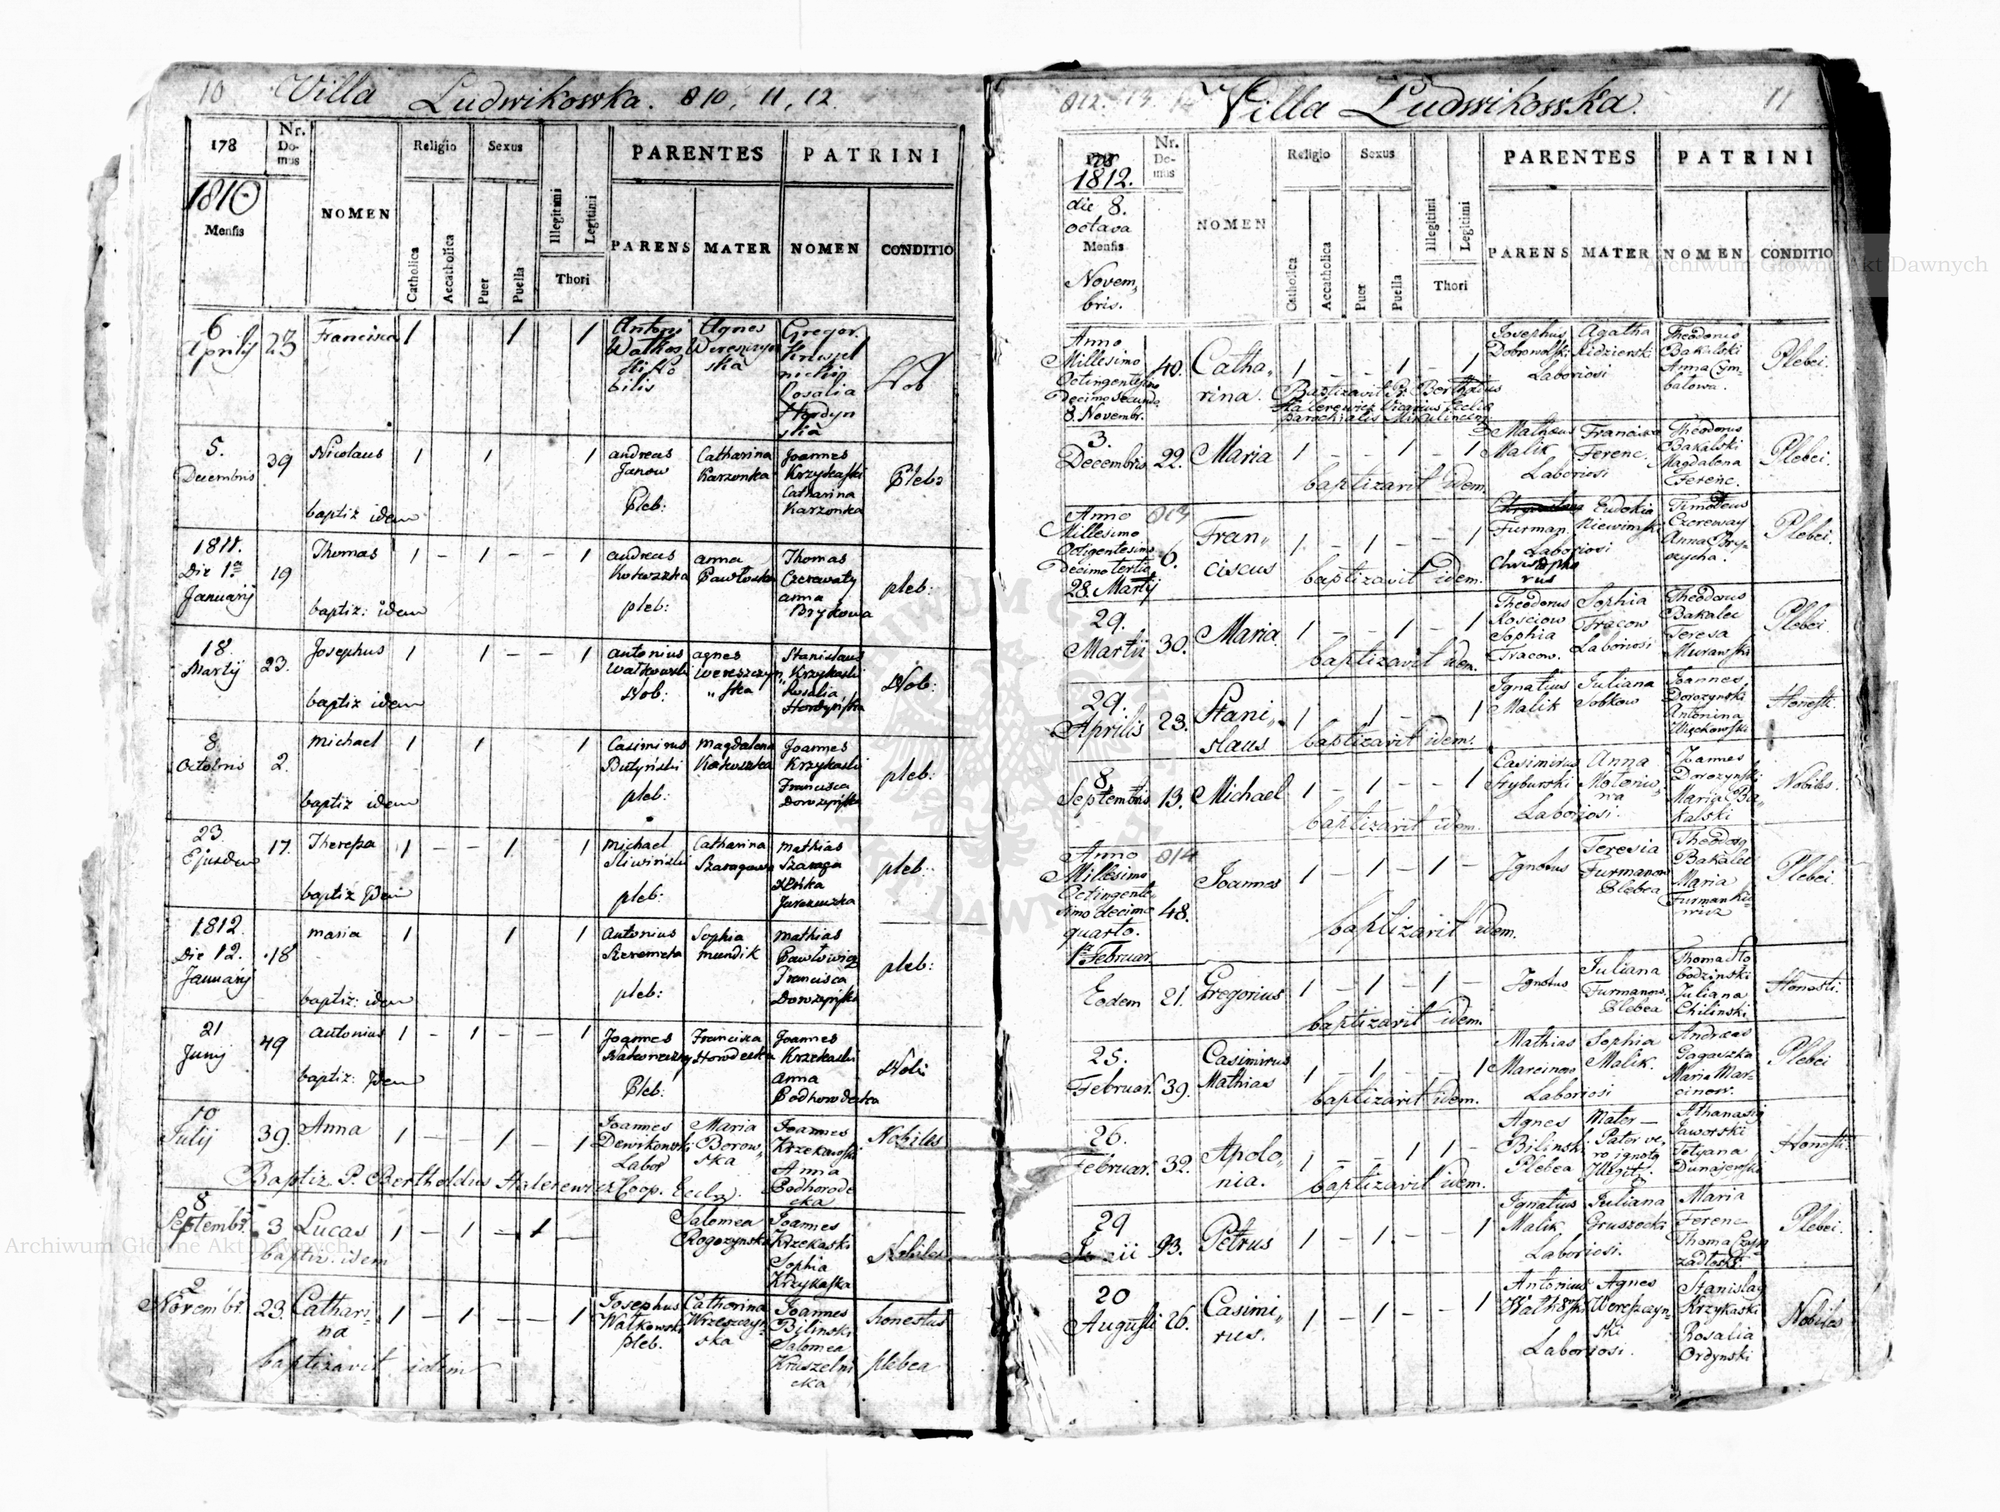 10 Villa Ludwikowka. 810, 11, 12.
178 Nr. Domus NOMEN Religio Sexus PARENTES PATRINI
1810
Mensis
Catholica Accatholica Puer Puella Illegitimi Legitimi Thori PARENS MATER NOMEN CONDITIO
6 Aprilis 23 Francisca 1 1 1 Agnes Gregor. Nob
Rosalia
5. Decembris 39 Nicolaus 1 1 1 andreas Janow Pleb: Catharina Karzonka Joannes Krzykaski Catharina Karzonka Plebs
baptiz idem
1811. Die 1ª Januarij 19 Thomas 1 - 1 - - 1 andreas Kokoszka pleb: anna Pawłoska Thomas Czerewaty anna Brykowa pleb:
baptiz: idem
18. Martij 23. Josephus 1 1 - - 1 antonius Watkowski Nob: agnes Wereszczyn„ska Stanislaus Krzykaski Rosalia Nob:
baptiz idem
8 Octobris 2. Michael 1 1 1 Casimirus Butyński pleb: Magdalena Kokoszka Joannes Krzykaski Francisca Dorozyńska pleb:
baptiz idem
23 Ejusdem 17. Theresa 1 - 1 - 1 Michael Sliwiński pleb: Catharina mathias pleb:
baptiz idem
1812. Die 12. Januarij 18 maria 1 1 1 antonius Szeremeta pleb: Sophia mundik mathias Francisca Dorozyńska pleb:
baptiz: idem
21 Junij 49 Antonius 1 - 1 - - 1 Joannes Pleb: Francisca Joannes Krzekaski anna Podhorodecka Nob:
baptiz: idem
10 Julij 39. Anna 1 - - 1 - 1 Joannes Labor Maria Borowska Joannes Anna Podhorodecka Nobiles
Baptiz. P. Bertholdus Halerewicz Coop. Eccl.
8 Septembr. 3 Lucas 1 - 1 - 1 - Salomea Rogozynska Joannes Krzekaski Sophia Krzykaska Nobiles
baptiz. idem
2 Novembr. 23. Catharina 1 - 1 - - 1 Josephus Watkowski pleb. Catharina Wrzeszczynska Joannes Bilinski Salomea Kruszelnicka honestus plebea
baptizavit idem
812. 13. 14 Villa Ludwikowska. 11
178 Nr. Domus NOMEN Religio Sexus PARENTES PATRINI
1812.
die 8. octava
Mensis
Novembris.
Catholica Accatholica Puer Puella Illegitimi Legitimi Thori PARENS MATER NOMEN CONDITIO
Anno Millesimo Octingentesimo Decimo secundo 8. Novembr. 40. Catharina. 1 - - 1 - 1 Josephus Dobrowolski Agatha Laboriosi Theodorus Bakalski Anna Cymbalowa. Plebei.
Baptizavit P. Bertholdus Halerewicz Vicarius
3. Decembris 22. Maria 1 - - 1 - 1 Matheus Malik Francisca Ferenc. Laboriosi Theodorus Bakalski Magdalena Ferenc. Plebei.
baptizavit idem
Anno 813 Millesimo Octigentesimo decimo tertio 28. Martij 6. Franciscus 1 - 1 - - 1 Furman Eudokia Laboriosi Timotheus Anna Plebei.
baptizavit idem.
29. Martii 30. Maria. 1 - - 1 - 1 Theodorus Kosciow Sophia Tracow. Sophia Tracow Laboriosi Theodorus Bakalec Teresa Murawska Plebei.
baptizavit idem.
29. Aprilis 23. Stanislaus 1 - 1 - - 1 Ignatius Malik Juliana Sobkow Joannes Dorozynski Antonina Więckowska Honesti.
baptizavit idem.
8 Septembris 13. Michael 1 - 1 - - 1 Casimirus Anna Laboriosi. Joannes Dorozynski Maria Bakalski Nobiles.
baptizavit idem.
Anno 814 Millesimo Octingentesimo decimo quarto. 1ª Februar. 48. Joannes 1 - 1 - 1 - Ignotus Teresia Furmanow Plebea Theodorus Bakalec Maria Plebei.
baptizavit idem.
Eodem 21. Gregorius 1 - 1 - 1 - Ignotus Juliana Furmanow. Plebea Thoma Juliana Chilinski Honesti.
baptizavit idem.
25. Februar. 39. Casimirus Mathias 1 - 1 - - 1 Mathias Marcinow Sophia Malik. Laboriosi Andreas Gagaszka Maria Marcinow. Plebei
baptizavit idem.
26. Februar. 32. Apolonia. 1 - - 1 1 - Agnes Bilinski Plebea Mater — Pater vero ignotus Illegit. Athanasij Jaworski Tetyana Dunajewski Honesti.
baptizavit idem.
29 93. Petrus 1 - 1 - - 1 Ignatius Malik Juliana Gruszecki Laboriosi. Maria Ferenc Thoma Plebei.
20 Augusti 26. Casimirus. 1 - 1 - - 1 Antonius Agnes Wereszczynski Laboriosi. Stanislaus Krzykaski Rosalia Ordynski Nobiles
Archiwum Główne Akt Dawnych
Archiwum Główne Akt Dawnych